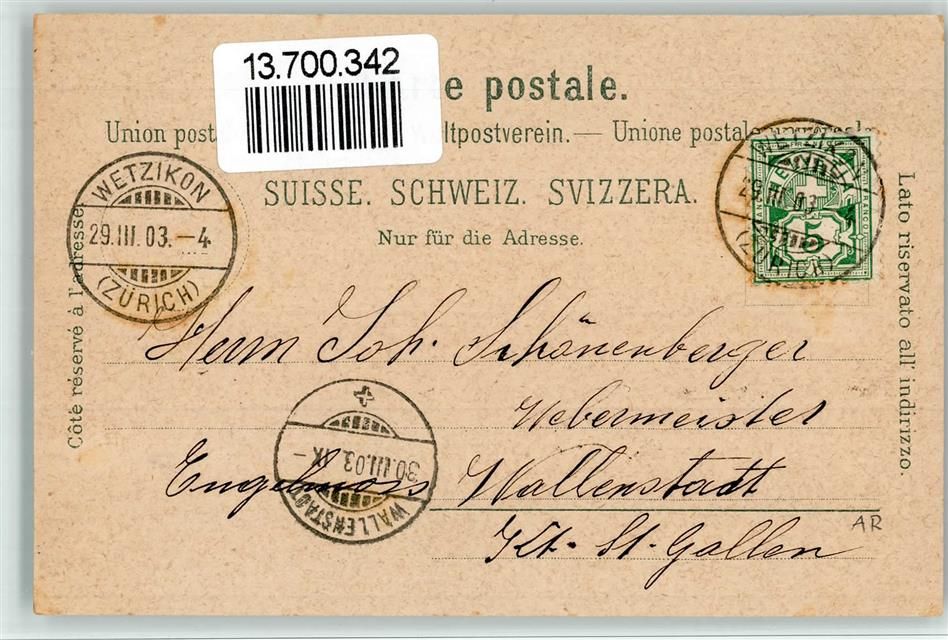 13.700.342
e postale.
Union post ltpostverein. — Unione postale
SUISSE. SCHWEIZ. SVIZZERA.
Nur für die Adresse.
Côté réservé à l'adresse
Lato riservato all' indirizzo.
WETZIKON
29.III.03.–4
(ZÜRICH)
WETZIKON
29.III.03.
(ZÜRICH)
5
Herrn Joh. Schönenberger
Webermeister
Engelmoos Wallenstadt
Kt. St. Gallen
30.III.03.IX–
WALLENSTADT
AR